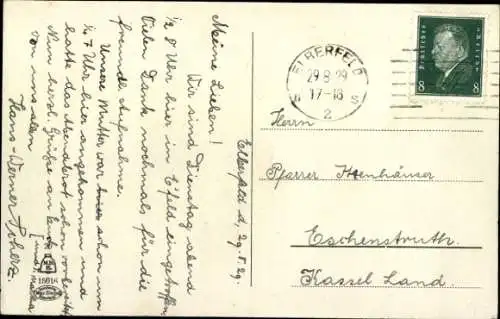 Elberfeld d. 29.8.29.
Meine Lieben!
Wir sind Dienstag abend
1/2 8 Uhr hier in E'feld eingetroffen
Vielen Dank nochmals für die
freundl. Aufnahme.
Unsere Mutter war hier schon um
1/4 7 Uhr hier angekommen und
hatte das Abendbrot schon
Nun herzl. Grüße an
von uns allen
Hans-Werner
ELBERFELD
29.8.29
17-18
S
2
Deutsches Reich
8 8
Herrn
Pfarrer
Eschenstruth.
Kassel Land.